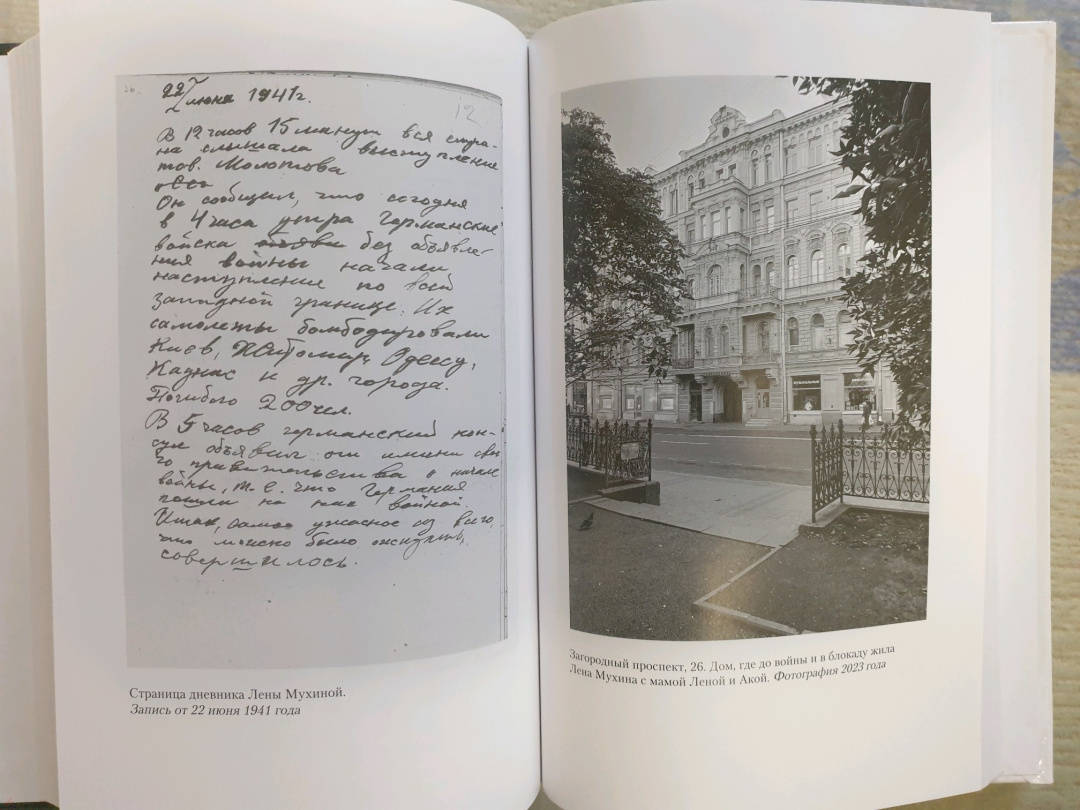 22 июня 1941 г.
12
В 12 часов 15 минут вся стра-
на слышала выступление
тов. Молотова
Он сообщил, что сегодня
в 4 часа утра германские
войска без объявле-
ния войны начали
наступление по всей
западной границе. Их
самолеты бомбодировали
Киев, Житомир, Одессу,
Каунас и др. города.
Погибло 200 чел.
В 5 часов германский кон-
сул объявил от имени сво-
го правительства о начале
войны, т. е. что Германия
пошла на нас войной.
Итак, самое ужасное из всего,
что можно было ожидать,
совершилось.
Страница дневника Лены Мухиной.
Запись от 22 июня 1941 года
Загородный проспект, 26. Дом, где до войны и в блокаду жила
Лена Мухина с мамой Леной и Акой. Фотография 2023 года